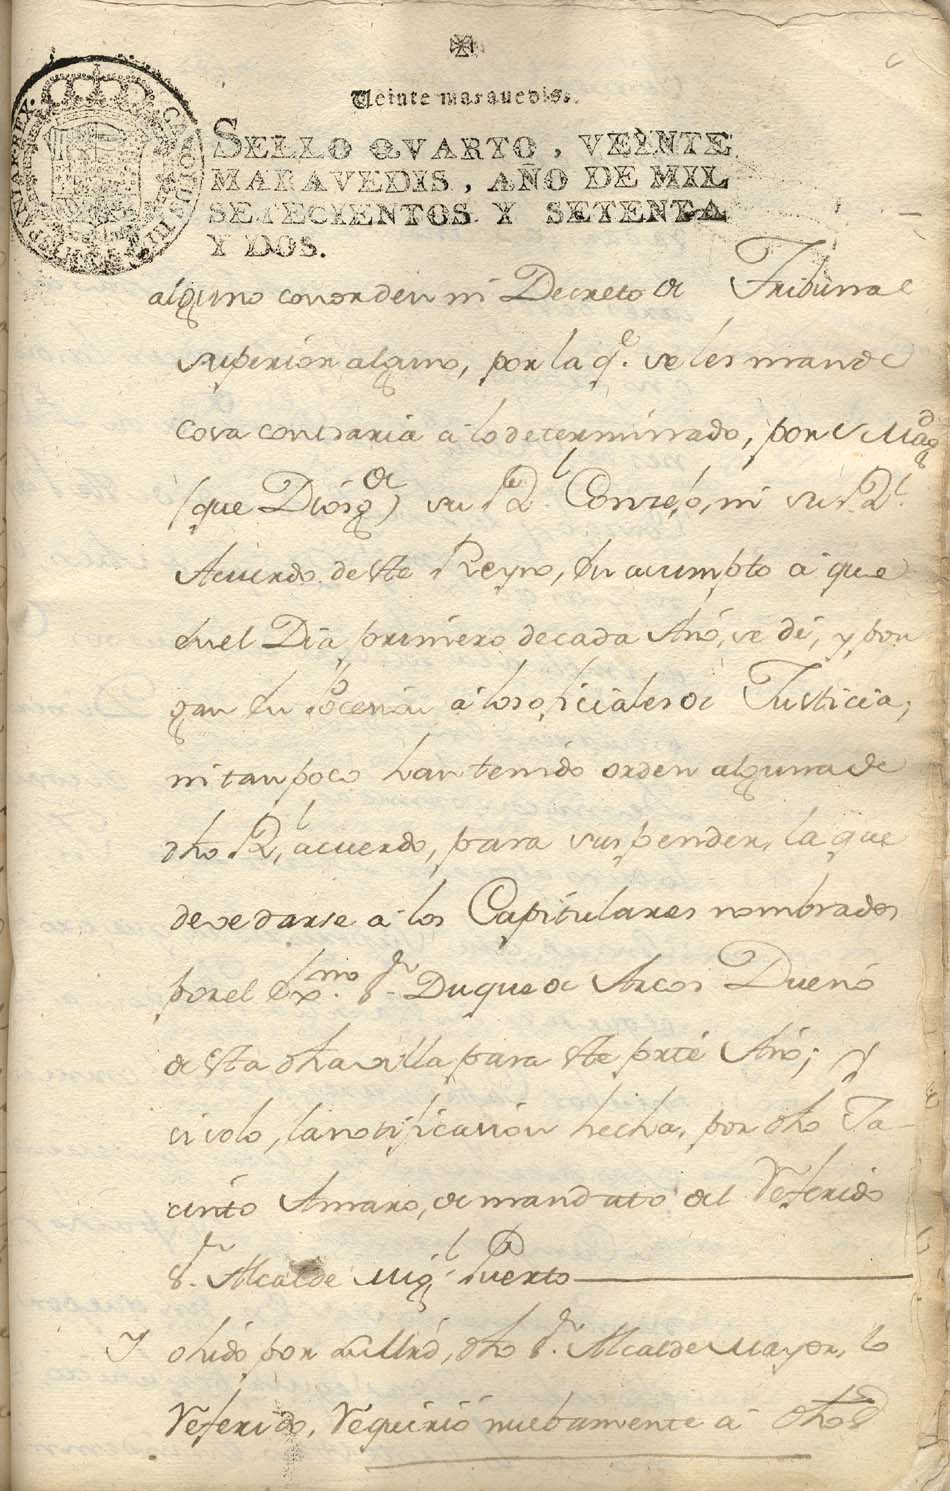 Veinte maravedis.
SELLO QVARTO, VEINTE
MARAVEDIS, AÑO DE MIL
SETECIENTOS Y SETENTA
Y DOS.
CAROLUS III
HISPANIAR REX.
alguno con orden ni Decreto de Tribunal
superior alguno, por la q.e se les mande
cosa contraria a lo determinado, por S Magd
(que Dios g.de) su R.l Consejo, ni su R.l
Acuerdo de este Reyno, en asumpto a que
en el Dia primero de cada Año, se dé, y pon
gan en a los oficiales de Justicia,
ni tanpoco han tenido orden alguna de
dho R.l acuerdo, para suspender, la que
deve darse a los Capitulares nombrados
por el Exmo. S.r Duque de Arcos Dueño
de esta dha villa para este prte Año; y
si solo, la notificasion hecha, por dho Ja
cinto Amaro, de mandato del referido
S.r Alcalde Mig.l Puerto
Y ohido por su Mrd, dho S.r Alcalde Mayor, lo
referido, requirió nuebamente a dhos